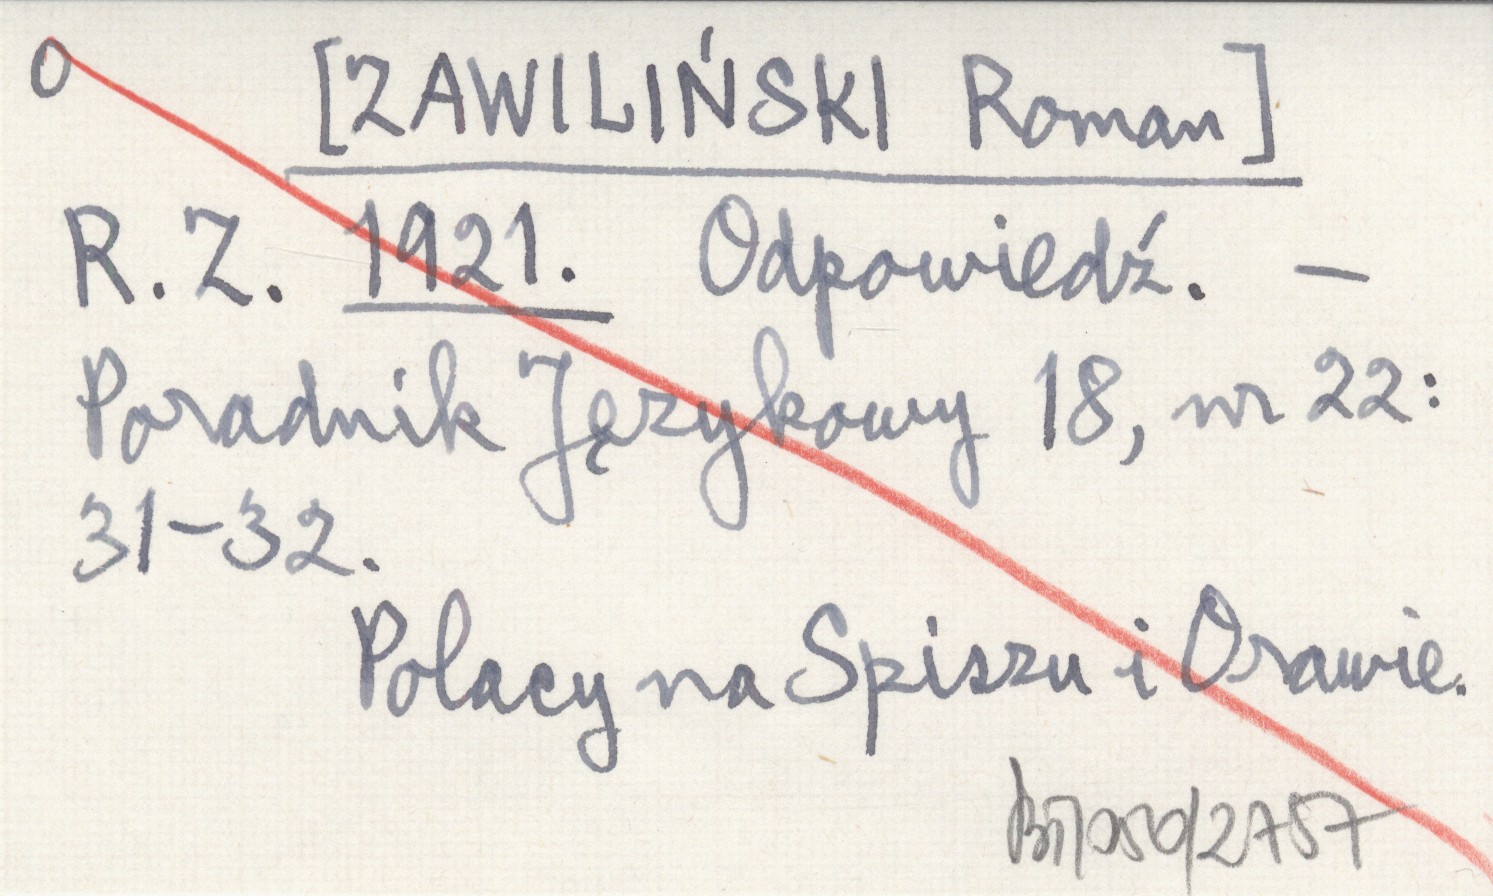 O [ZAWILIŃSKI Roman]
R. Z. 1921. Odpowiedź. —
Poradnik Językowy 18, nr 22:
31-32.
Polacy na Spiszu i Orawie.